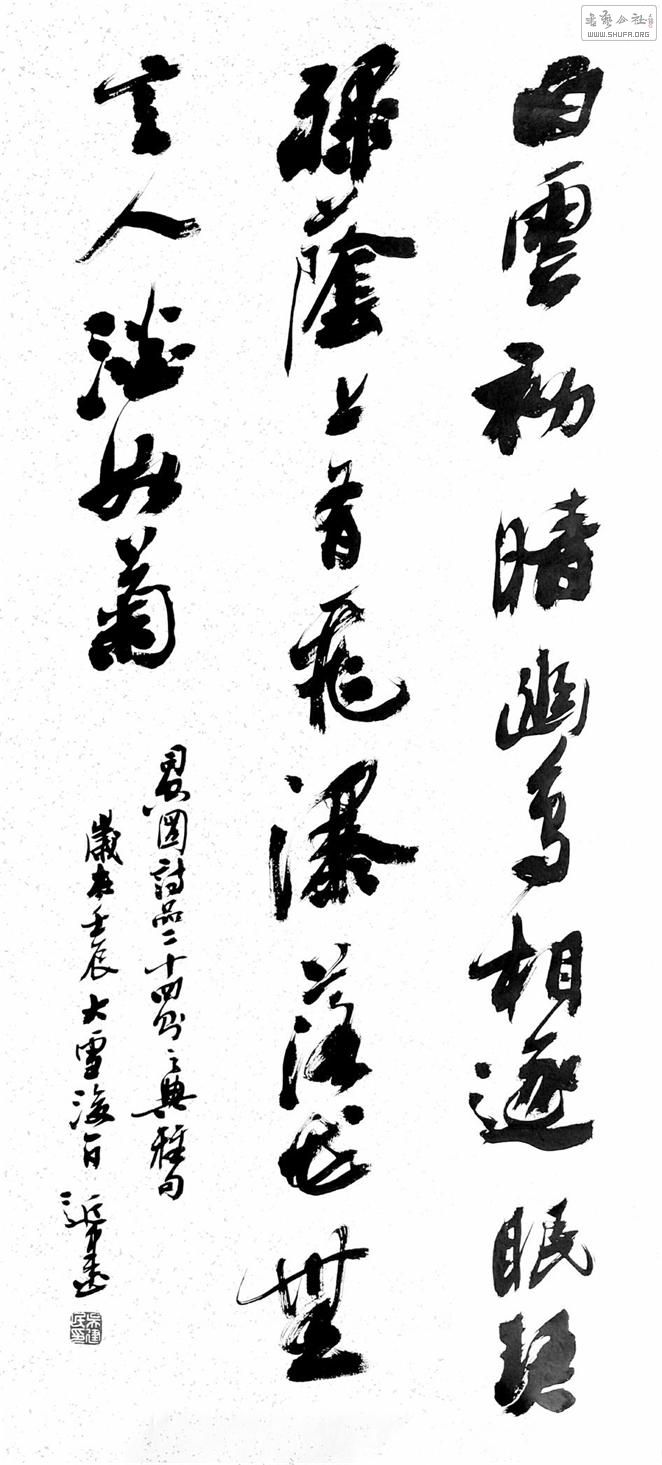 書藝公社
WWW.SHUFA.ORG
白雲初晴幽鳥相逐眠琴
綠蔭上有飛瀑落花無
言人淡如菊
司空圖詩品二十四則之典雅句
歲在壬辰大雪後一日